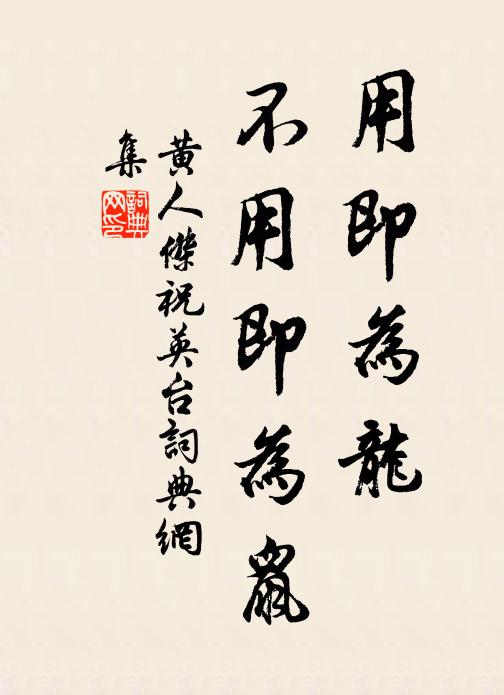 用即為龍
不用即為鼠
黄人傑祝英台詞典網
集
詞典
网印